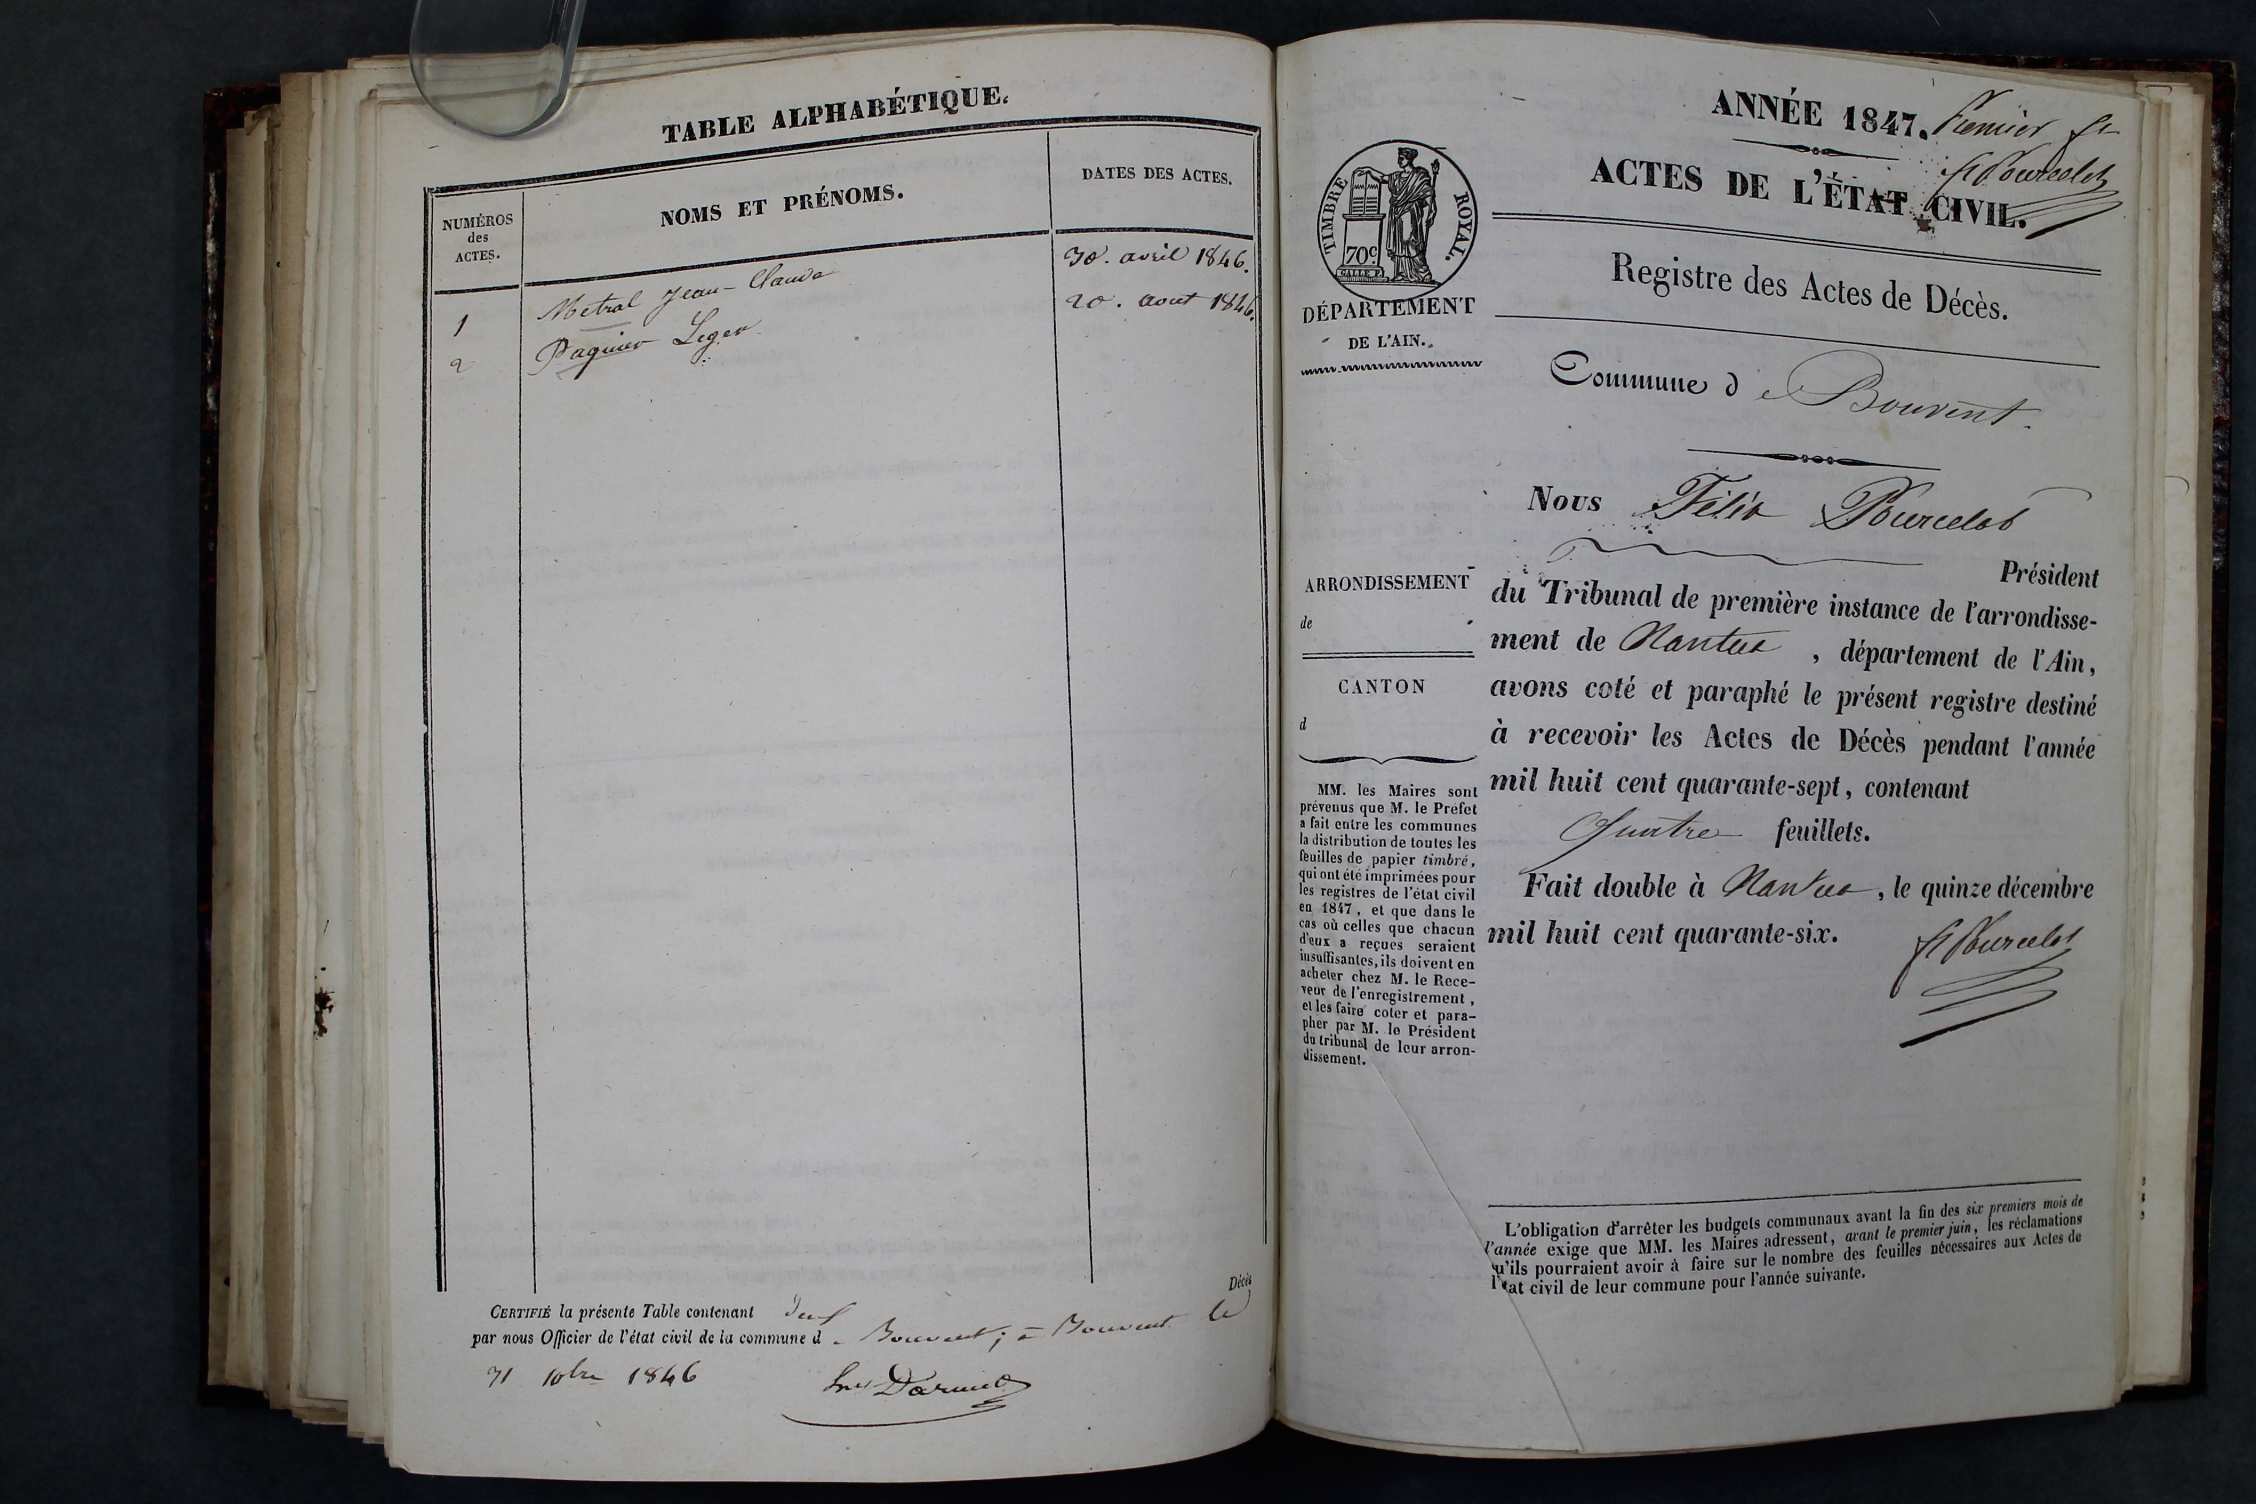 TABLE ALPHABÉTIQUE.
NUMÉROS
des
ACTES.
NOMS ET PRÉNOMS.
DATES DES ACTES.
1 Metral Jean-Claude 30. avril 1846.
2 Paquier Leger 20. aout 1846.
CERTIFIÉ la présente Table contenant deux Décès
par nous Officier de l'état civil de la commune d Bouvent; à Bouvent le
31 10bre 1846
Darmet
ANNÉE 1847. Premier ft
ft Pourcelot
ACTES DE L'ÉTAT CIVIL.
Registre des Actes de Décès.
TIMBRE ROYAL.
70c.
DÉPARTEMENT
DE L'AIN.
Commune de Bouvent.
Nous Félix Pourcelot
Président
ARRONDISSEMENT
de
CANTON
d
MM. les Maires sont
prévenus que M. le Préfet
a fait entre les communes
la distribution de toutes les
feuilles de papier timbré,
qui ont été imprimées pour
les registres de l'état civil
en 1847, et que dans le
cas où celles que chacun
d'eux a reçues seraient
insuffisantes, ils doivent en
acheter chez M. le Rece-
veur de l'enregistrement,
et les faire coter et para-
pher par M. le Président
du tribunal de leur arron-
dissement.
du Tribunal de première instance de l'arrondisse-
ment de Nantua, département de l'Ain,
avons coté et paraphé le présent registre destiné
à recevoir les Actes de Décès pendant l'année
mil huit cent quarante-sept, contenant
Quatre feuillets.
Fait double à Nantua, le quinze décembre
mil huit cent quarante-six.
ft Pourcelot
L'obligation d'arrêter les budgets communaux avant la fin des six premiers mois de
l'année exige que MM. les Maires adressent, avant le premier juin, les réclamations
qu'ils pourraient avoir à faire sur le nombre des feuilles nécessaires aux Actes de
l'état civil de leur commune pour l'année suivante.